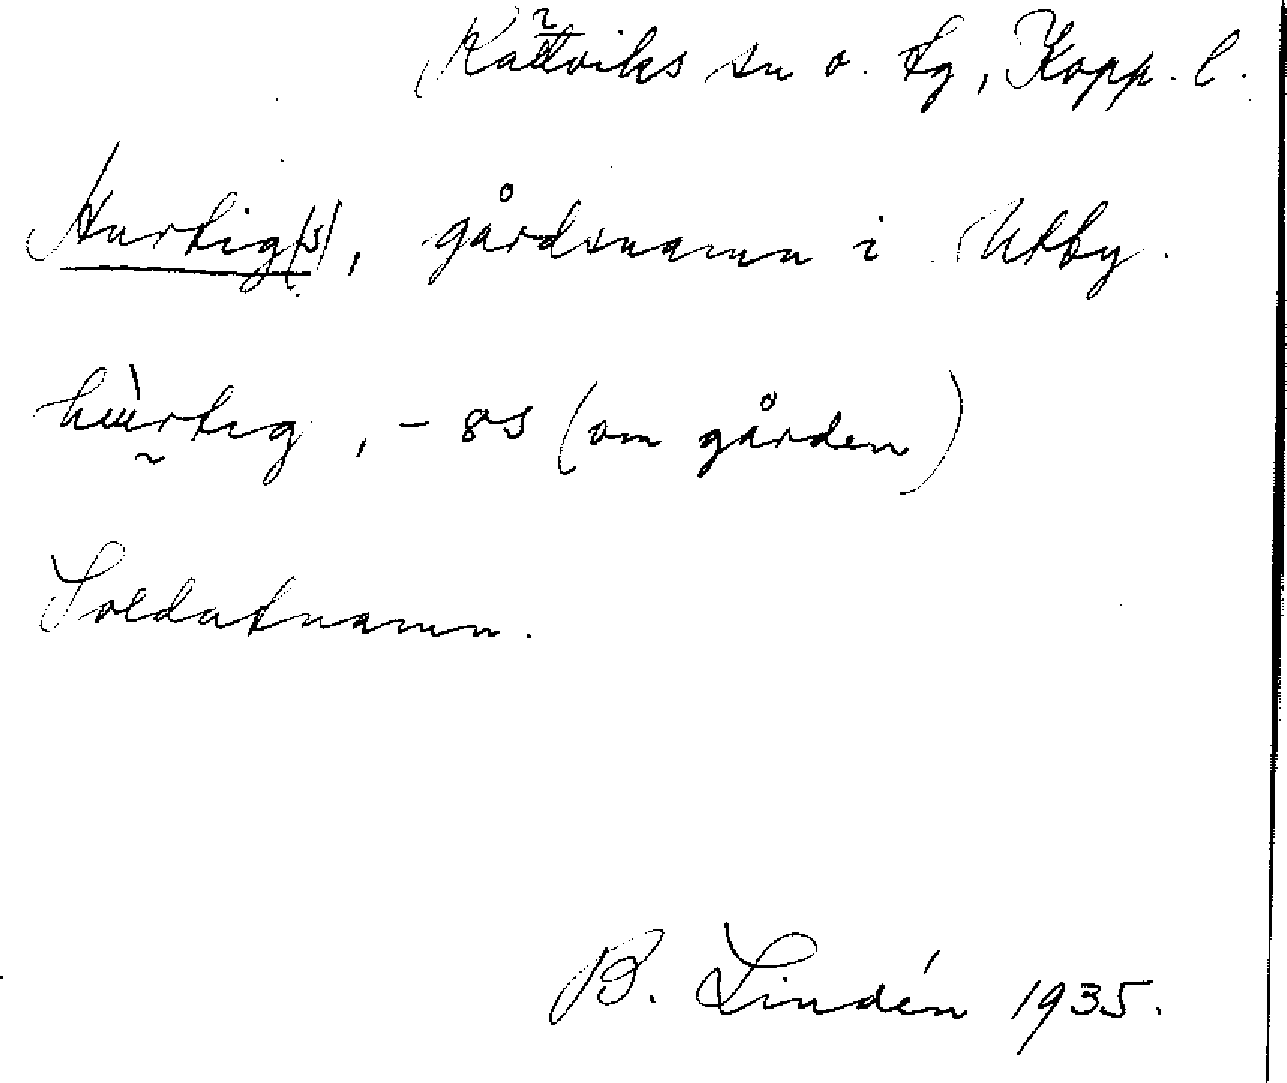 Rättviks sn o. tg, Kopp. l.
Hurtig(s), gårdsnamn i Utby.
hùrtig, - 8s (om gården)
Soldatnamn.
B. Lindén 1935.